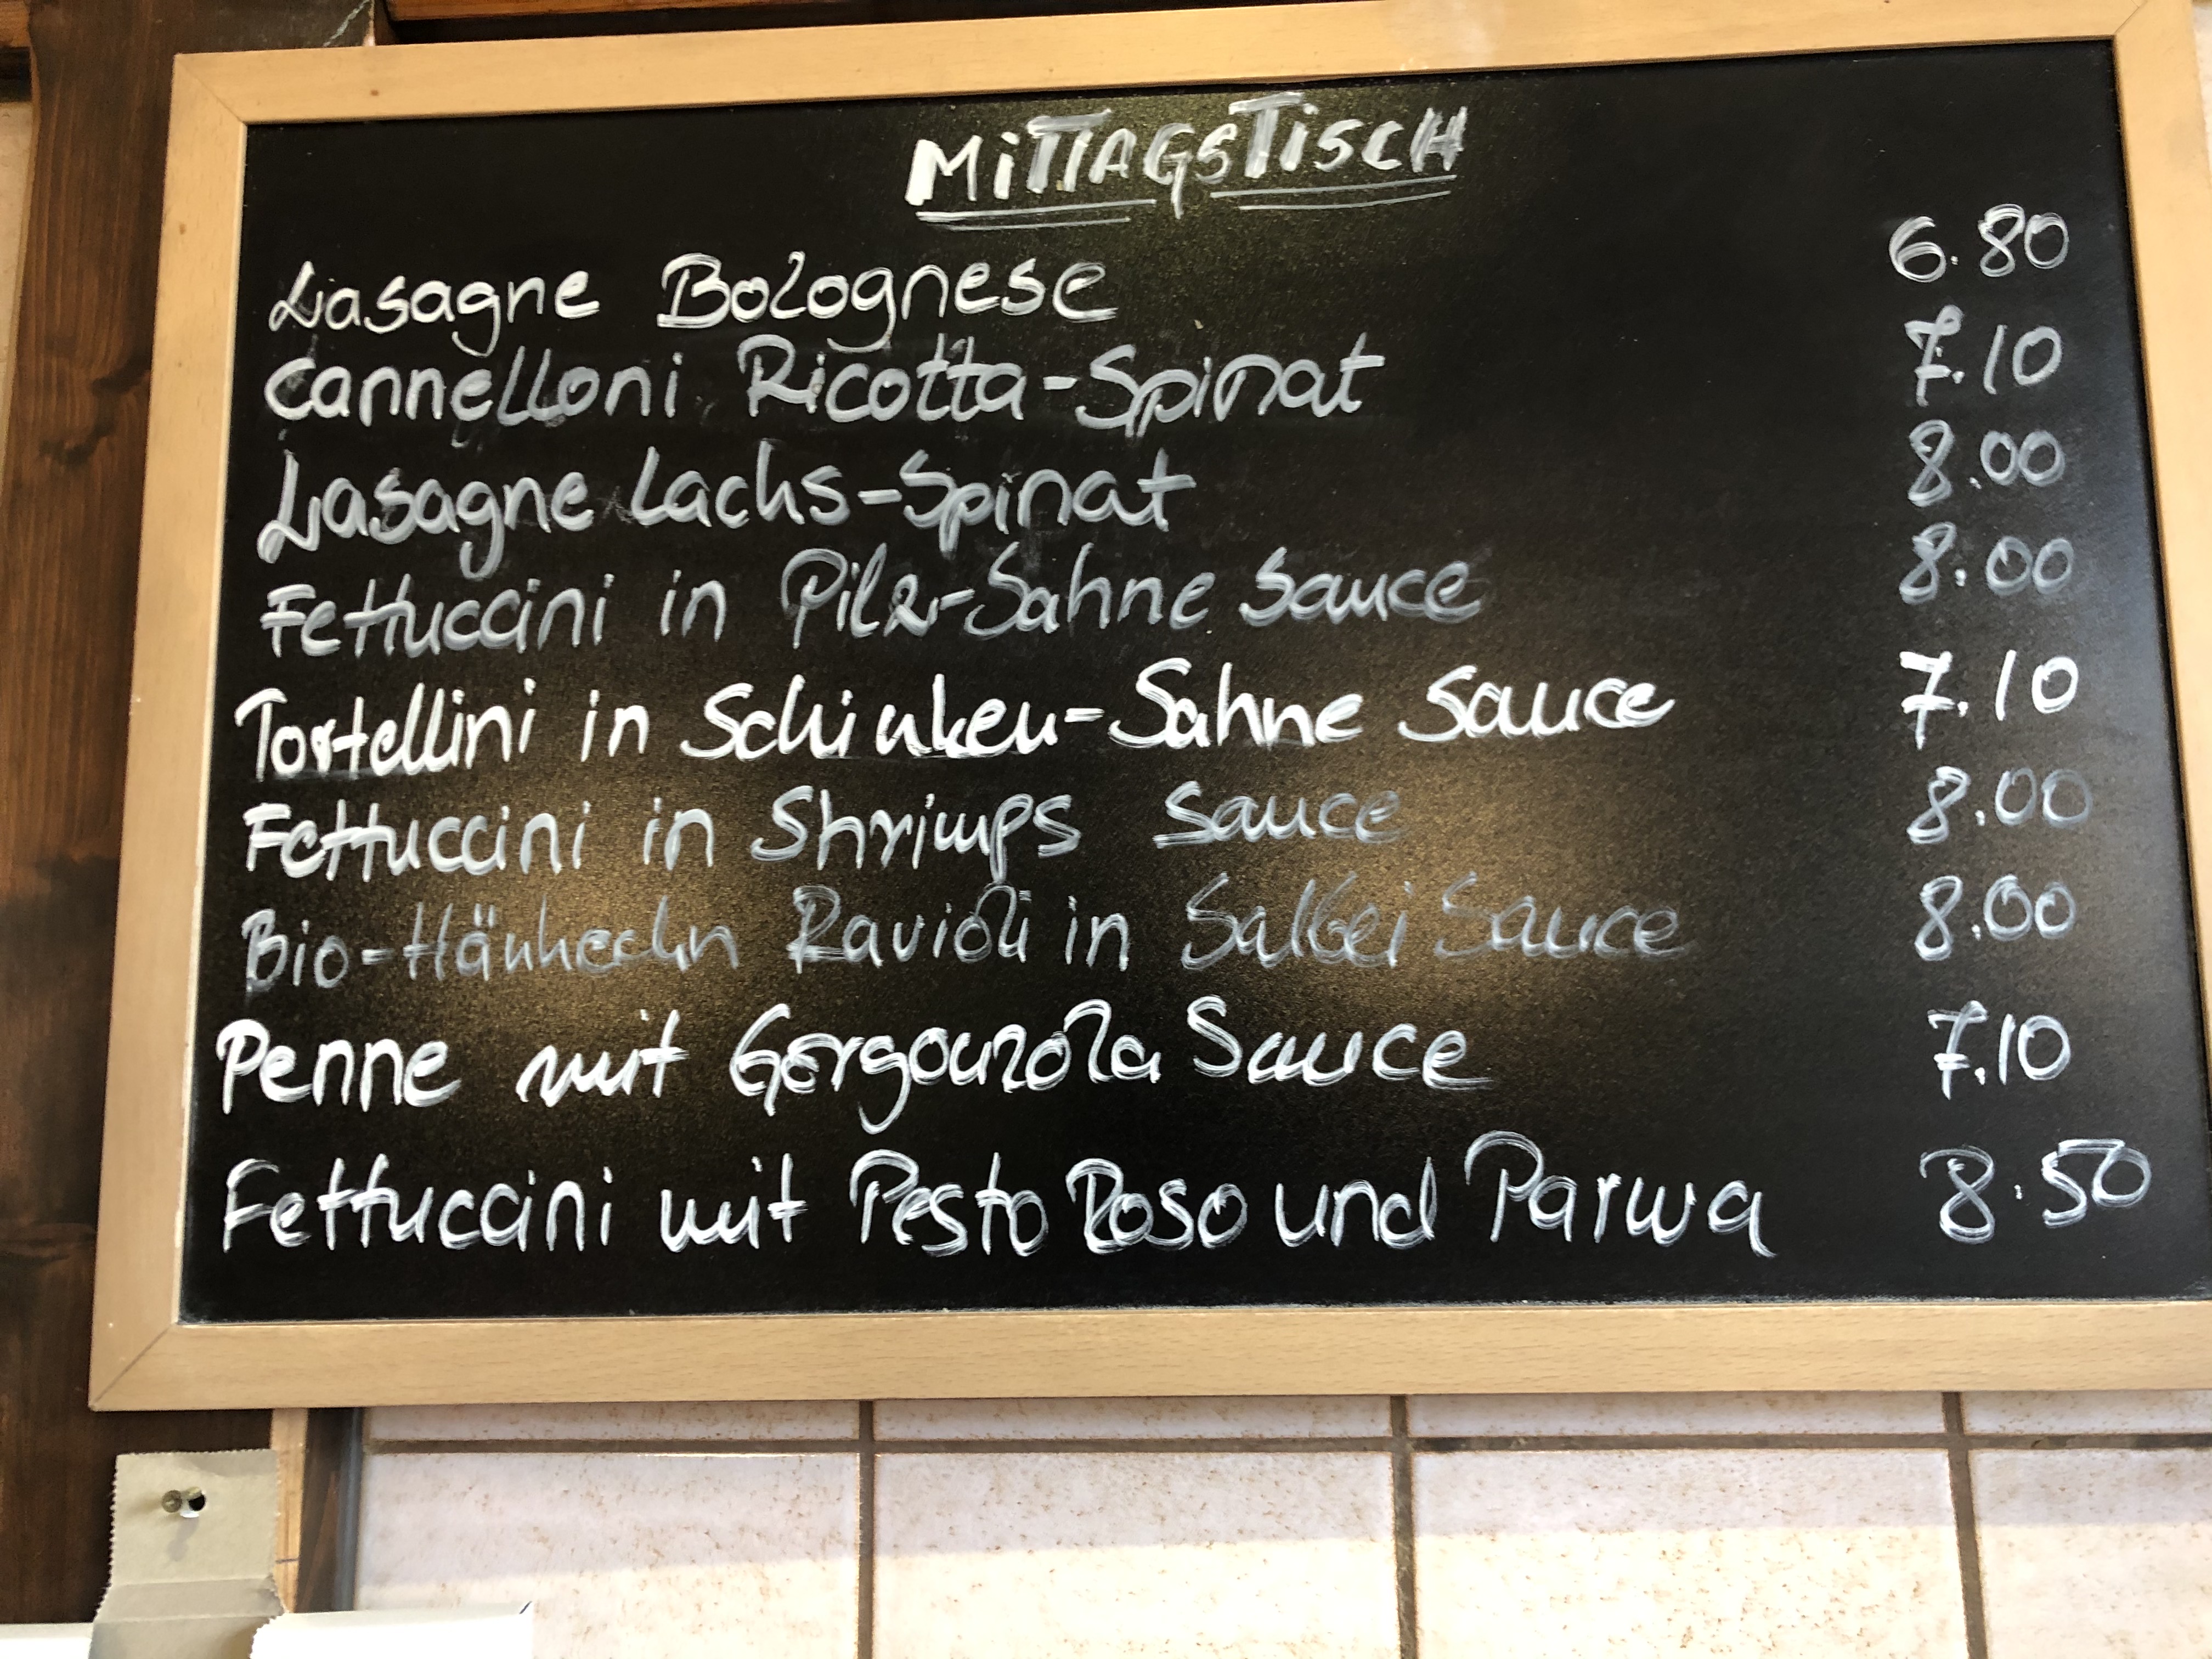 MiTTAGSTiSCH
Lasagne Bolognese 6.80
Cannelloni Ricotta-Spinat 7.10
Lasagne Lachs-Spinat 8.00
Fettuccini in Pilz-Sahne Sauce 8.00
Tortellini in Schinken-Sahne Sauce 7.10
Fettuccini in Shrimps Sauce 8.00
Bio-Hänhechn Ravioli in Salbei Sauce 8.00
Penne mit Gorgonzola Sauce 7.10
Fettuccini mit Pesto Roso und Parma 8.50